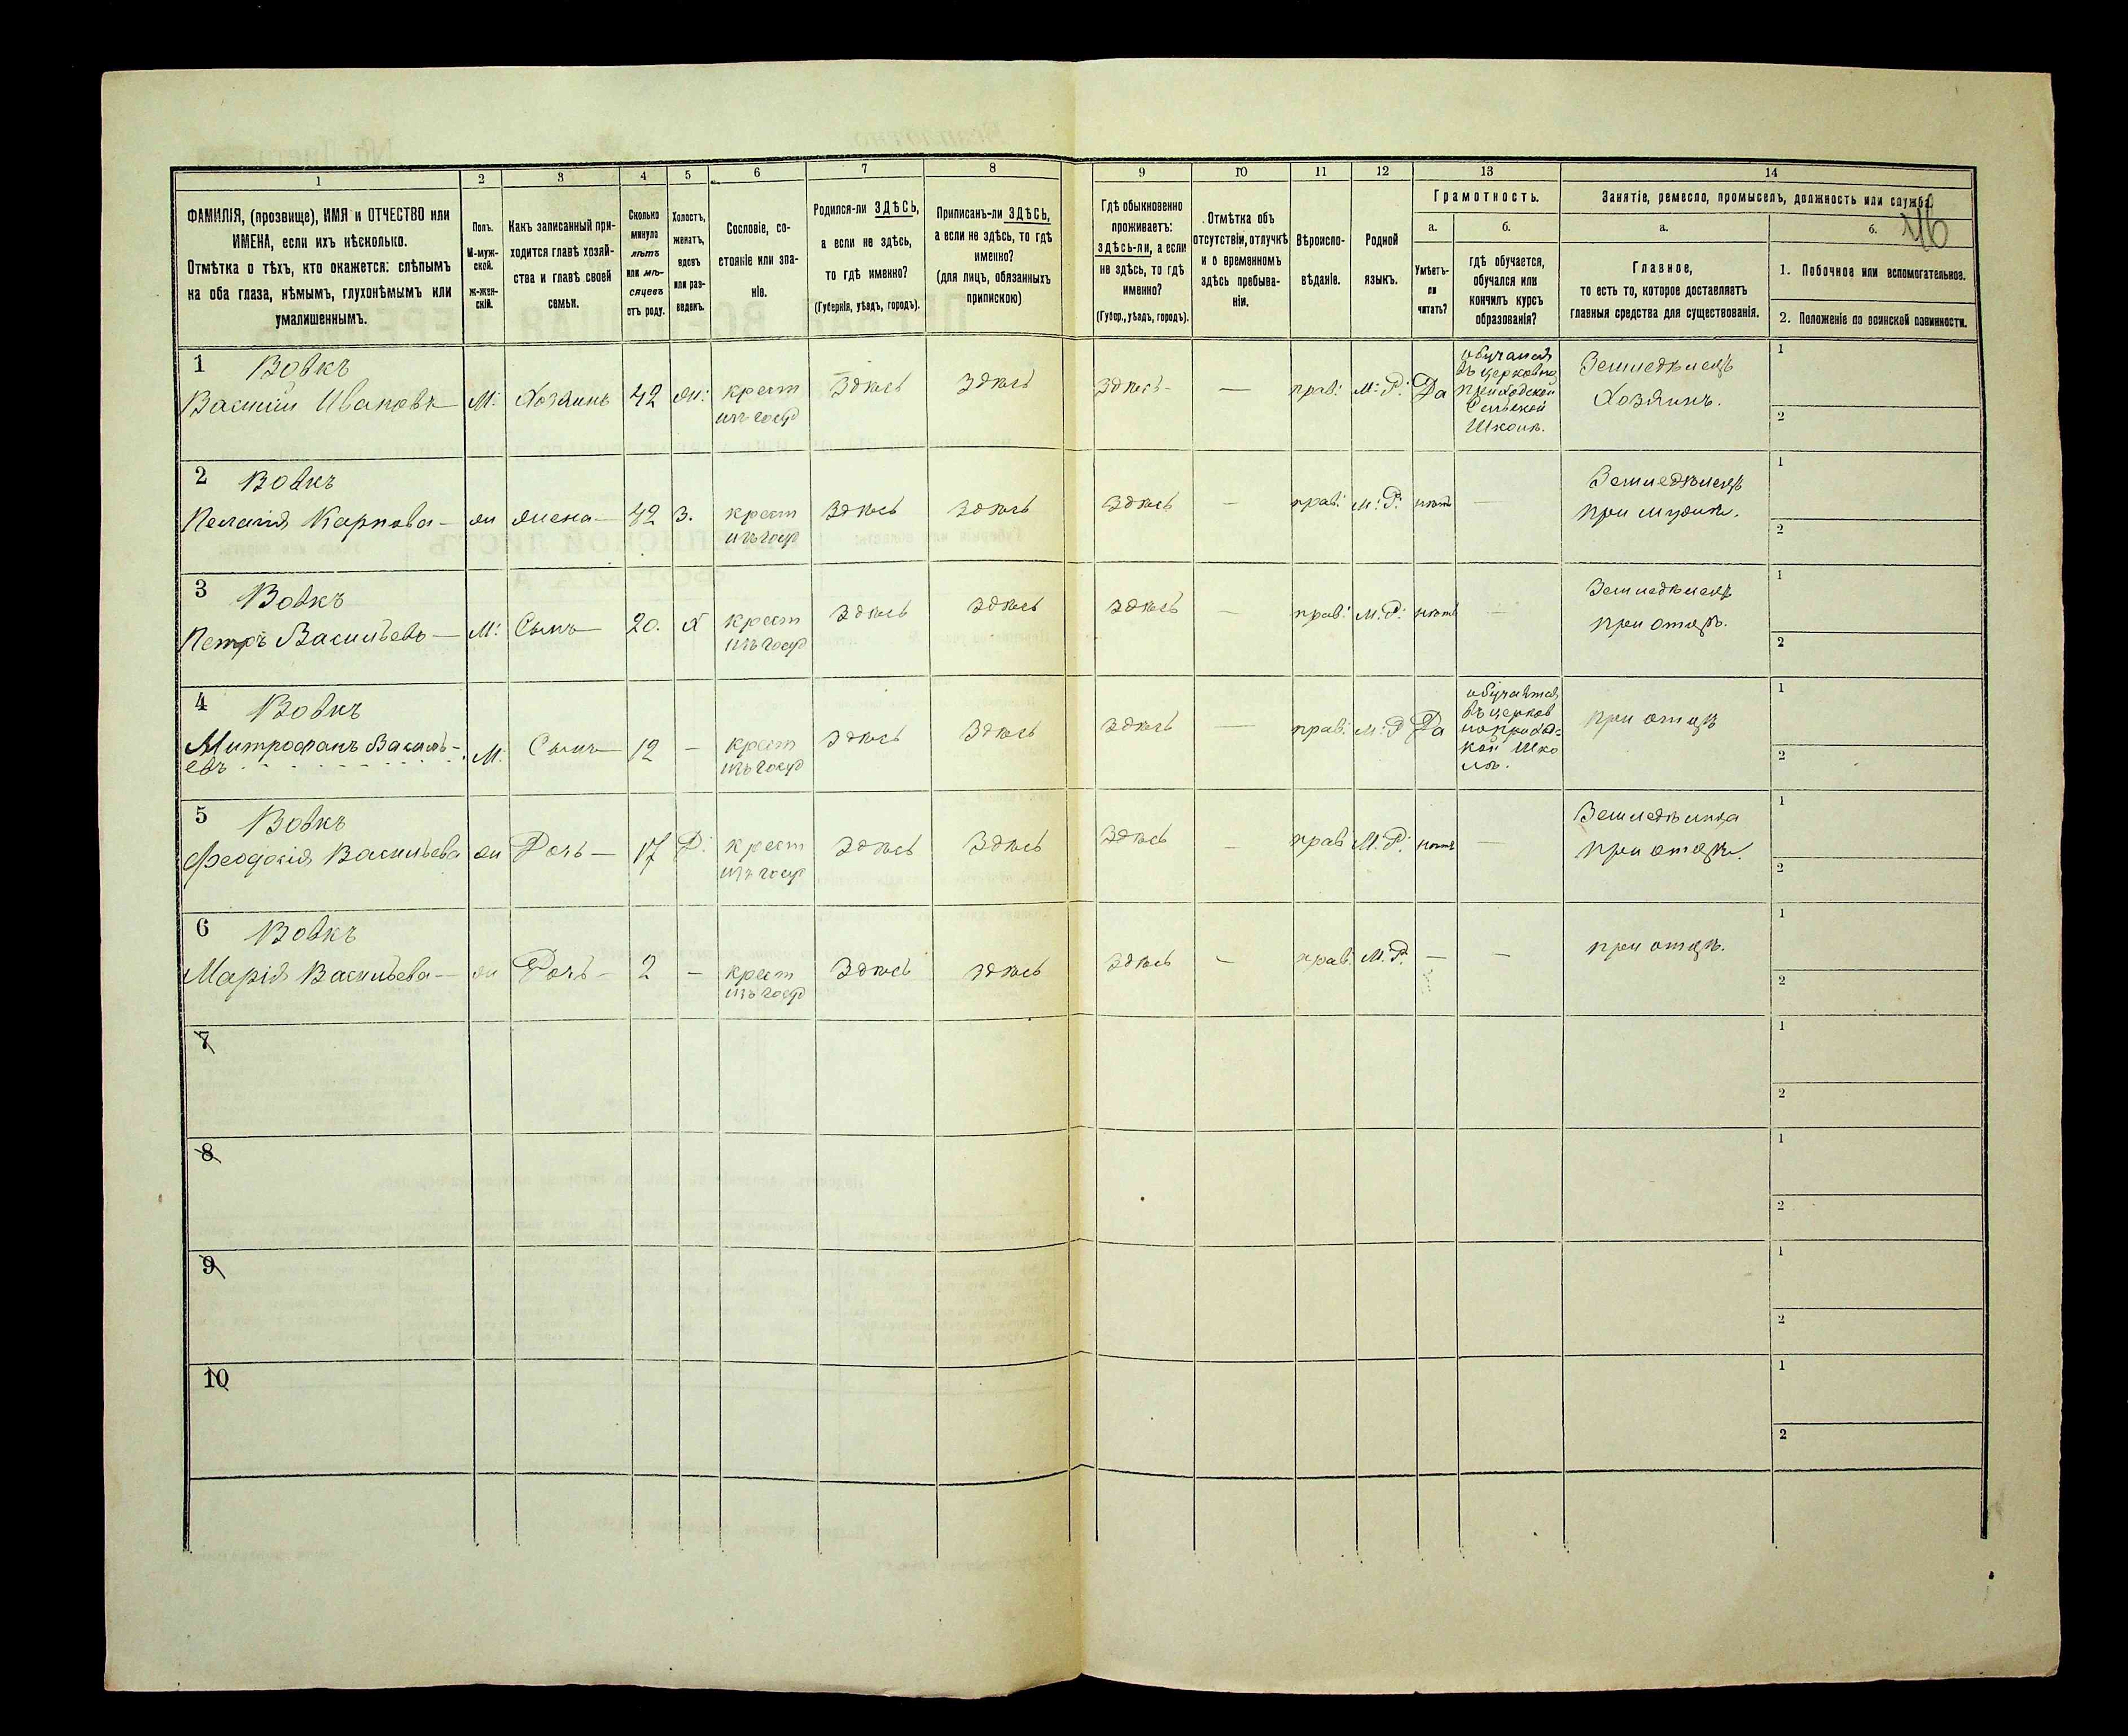 1 2 3 4 5 6 7 8 9 10 11 12 13 14
ФАМИЛІЯ, (прозвище), ИМЯ и ОТЧЕСТВО или
ИМЕНА, если ихъ нѣсколько.
Отмѣтка о тѣхъ, кто окажется: слѣпымъ
на оба глаза, нѣмымъ, глухонѣмымъ или
умалишеннымъ.
Полъ.
М-муж-
ской.
ж-жен-
скій.
Какъ записанный при-
ходится главѣ хозяй-
ства и главѣ своей
семьи.
Сколько
минуло
лѣтъ
или мѣ-
сяцевъ
отъ роду.
Холостъ,
женатъ,
вдовъ
или раз-
веденъ.
Сословіе, со-
стояніе или зва-
ніе.
Родился-ли ЗДѢСЬ,
а если не здѣсь,
то гдѣ именно?
(Губернія, уѣздъ, городъ).
Приписанъ-ли ЗДѢСЬ,
а если не здѣсь, то гдѣ
именно?
(для лицъ, обязанныхъ
припискою)
Гдѣ обыкновенно
проживаетъ:
здѣсь-ли, а если
не здѣсь, то гдѣ
именно?
(Губер., уѣздъ, городъ).
Отмѣтка объ
отсутствіи, отлучкѣ
и о временномъ
здѣсь пребыва-
ніи.
Вѣроиспо-
вѣданіе.
Родной
языкъ.
Грамотность.
а.
Умѣетъ-
ли
читать?
б.
гдѣ обучается,
обучался или
кончилъ курсъ
образованія?
Занятіе, ремесло, промыселъ, должность или служба.
а.
Главное,
то есть то, которое доставляетъ
главныя средства для существованія.
б.
46
1. Побочное или вспомогательное.
2. Положеніе по воинской повинности.
1 Вовкъ
Василій Ивановъ — М. Хозяинъ 42 ж: крест изъ госуд Здѣсь Здѣсь Здѣсь — прав: М: Р: Да
обучался
въ церковно
приходской
Сельской
Школѣ.
Земледѣлецъ
Хозяинъ.
1
2
2 Вовкъ
Пелагія Карпова — ж жена — 42 З. крест изъ госуд Здѣсь Здѣсь Здѣсь — прав: М: Р: нѣтъ —
Земледѣлецъ
при мужѣ.
1
2
3 Вовкъ
Петръ Васильевъ — М: Сынъ — 20. Х крест изъ госуд Здѣсь Здѣсь Здѣсь — прав: М: Р: нѣтъ —
Земледѣлецъ
при отцѣ.
1
2
4 Вовкъ
Митрофанъ Василь-
евъ М. Сынъ — 12 — крест изъ госуд Здѣсь Здѣсь Здѣсь — прав: М: Р Да
обучается
въ церков
ноприход-
кой Шко
лѣ.
при отцѣ
1
2
5 Вовкъ
Феодосія Васильева ж Дочь — 17 Д: крест изъ госуд Здѣсь Здѣсь Здѣсь — прав М. Р. нѣтъ —
при отцѣ.
1
2
6 Вовкъ
Марія Васильева — ж Дочь — 2 — крест изъ госуд Здѣсь Здѣсь Здѣсь — прав. М. Р. — —
при отцѣ.
1
2
7
1
2
8
1
2
9
1
2
10
1
2